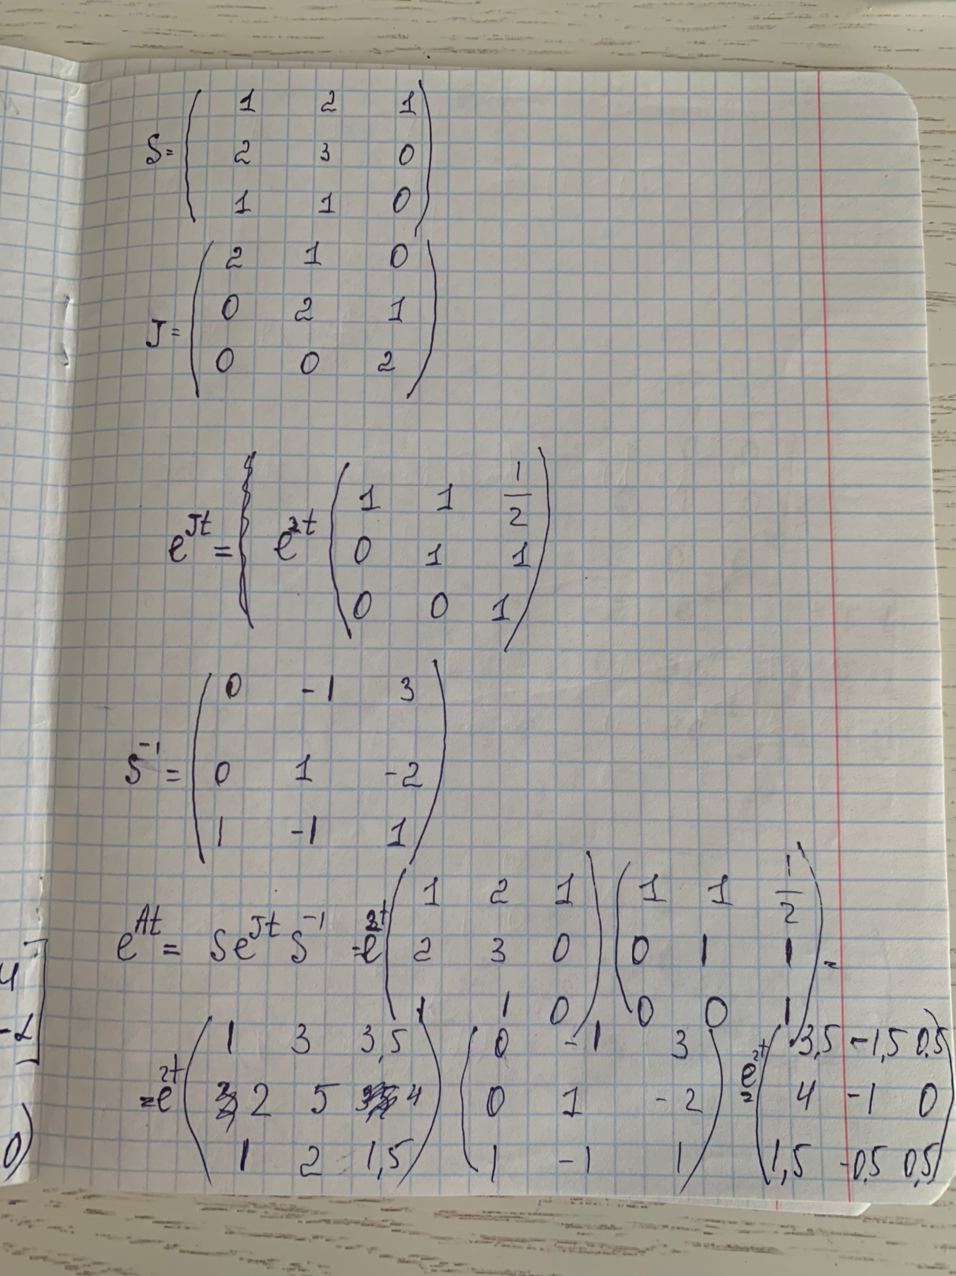 S= ( 1 2 1
2 3 0
1 1 0 )
J= ( 2 1 0
0 2 1
0 0 2 )
e^Jt = e^2t ( 1 1 1/2
0 1 1
0 0 1 )
S^-1 = ( 0 -1 3
0 1 -2
1 -1 1 )
e^At = S e^Jt S^-1 = e^2t ( 1 2 1
2 3 0
1 1 0 ) ( 1 1 1/2
0 1 1
0 0 1 ) =
= e^2t ( 1 3 3,5
2 5 4
1 2 1,5 ) ( 0 -1 3
0 1 -2
1 -1 1 ) = e^2t ( 3,5 -1,5 0,5
4 -1 0
1,5 -0,5 0,5 )
4 ]
-2 ]
0)